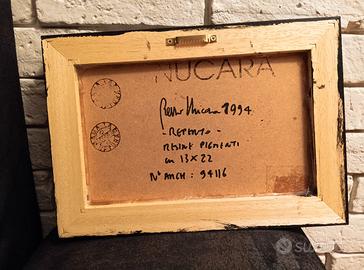 NUCARA
Nucara 1994
- REPERTO -
RESINE PIGMENTI
cm 13x22
N° ARCH: 94116
subito